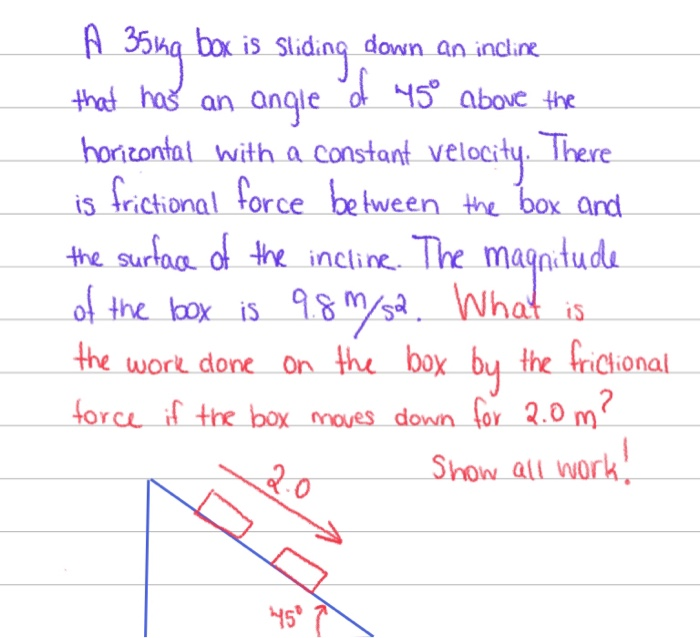 A 35kg box is sliding down an incline
that has an angle of 45° above the
horizontal with a constant velocity. There
is frictional force between the box and
the surface of the incline. The magnitude
of the box is 9.8 m/s2. What is
the work done on the box by the frictional
force if the box moves down for 2.0 m?
Show all work!
2.0
45°